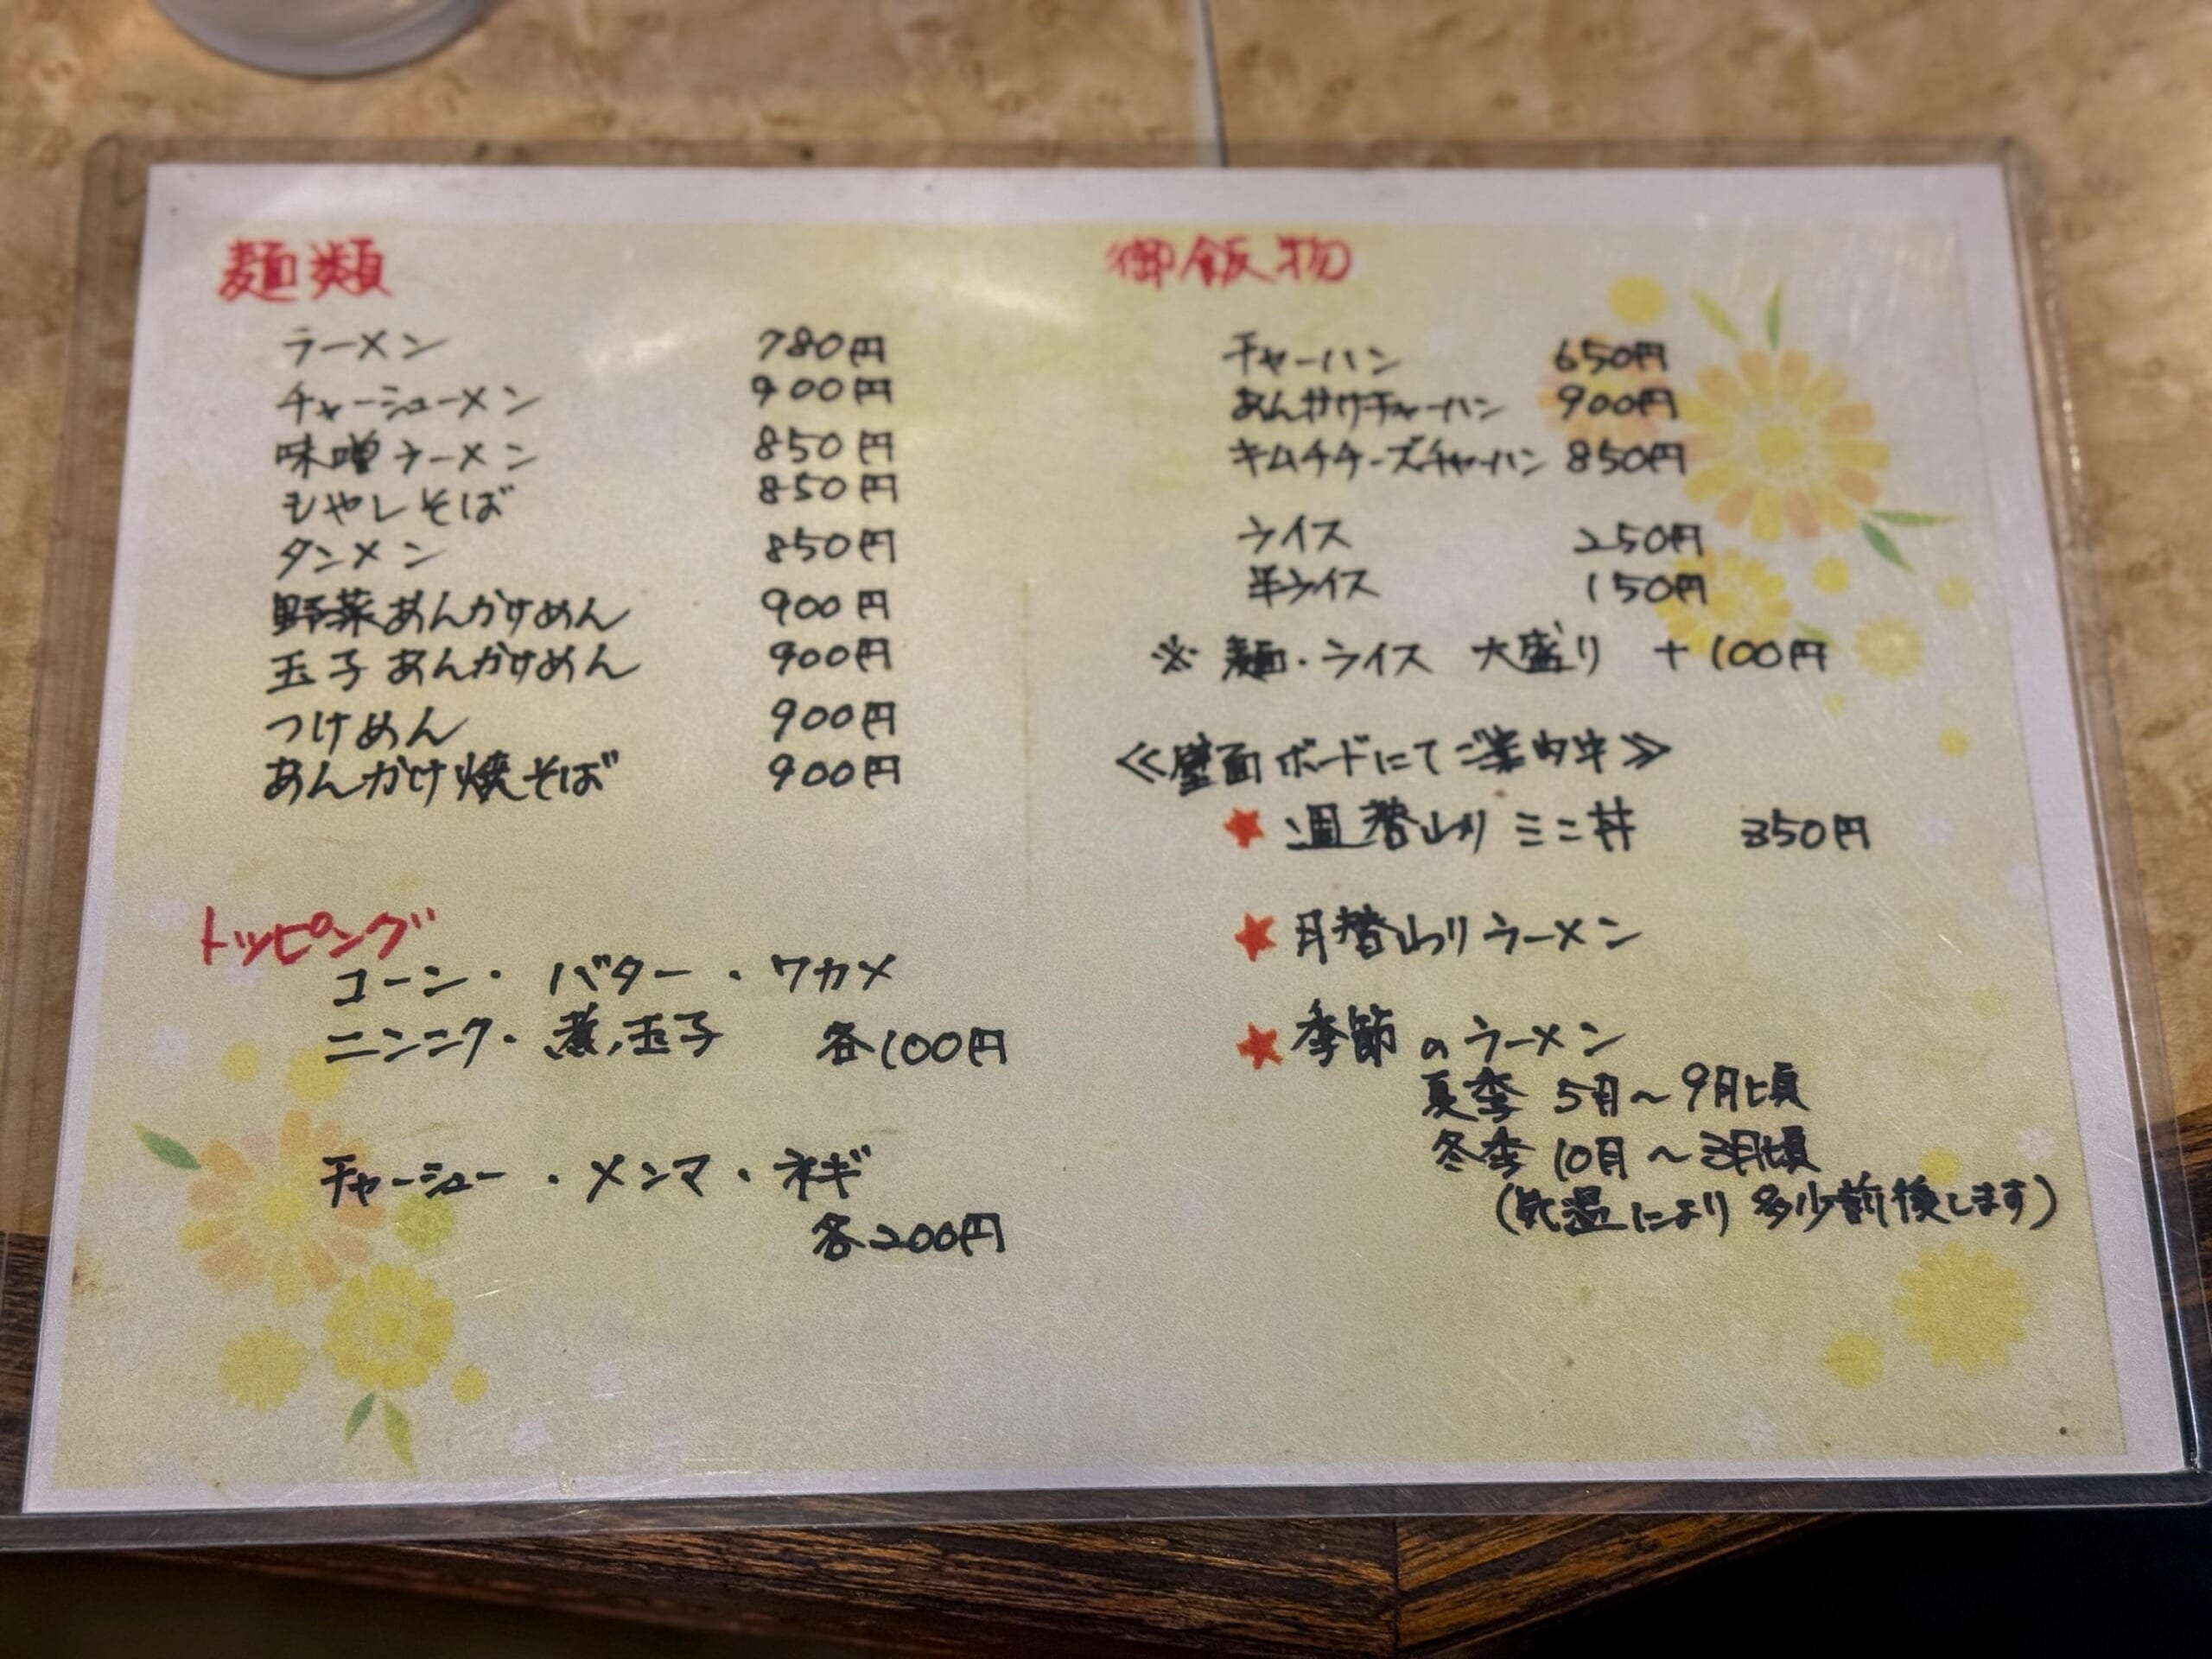 麺類
ラーメン 780円
チャーシューメン 900円
味噌ラーメン 850円
もやしそば 850円
タンメン 850円
野菜あんかけめん 900円
玉子あんかけめん 900円
つけめん 900円
あんかけ焼そば 900円
トッピング
コーン・バター・ワカメ
ニンニク・煮玉子 各100円
チャーシュー・メンマ・ネギ
各200円
御飯物
チャーハン 650円
あんかけチャーハン 900円
キムチチーズチャーハン 850円
ライス 250円
半ライス 150円
※麺・ライス 大盛り +100円
≪壁面ボードにてご案内中≫
★週替わりミニ丼 350円
★月替わりラーメン
★季節のラーメン
夏季 5月〜9月頃
冬季 10月〜3月頃
(気温により多少前後します)